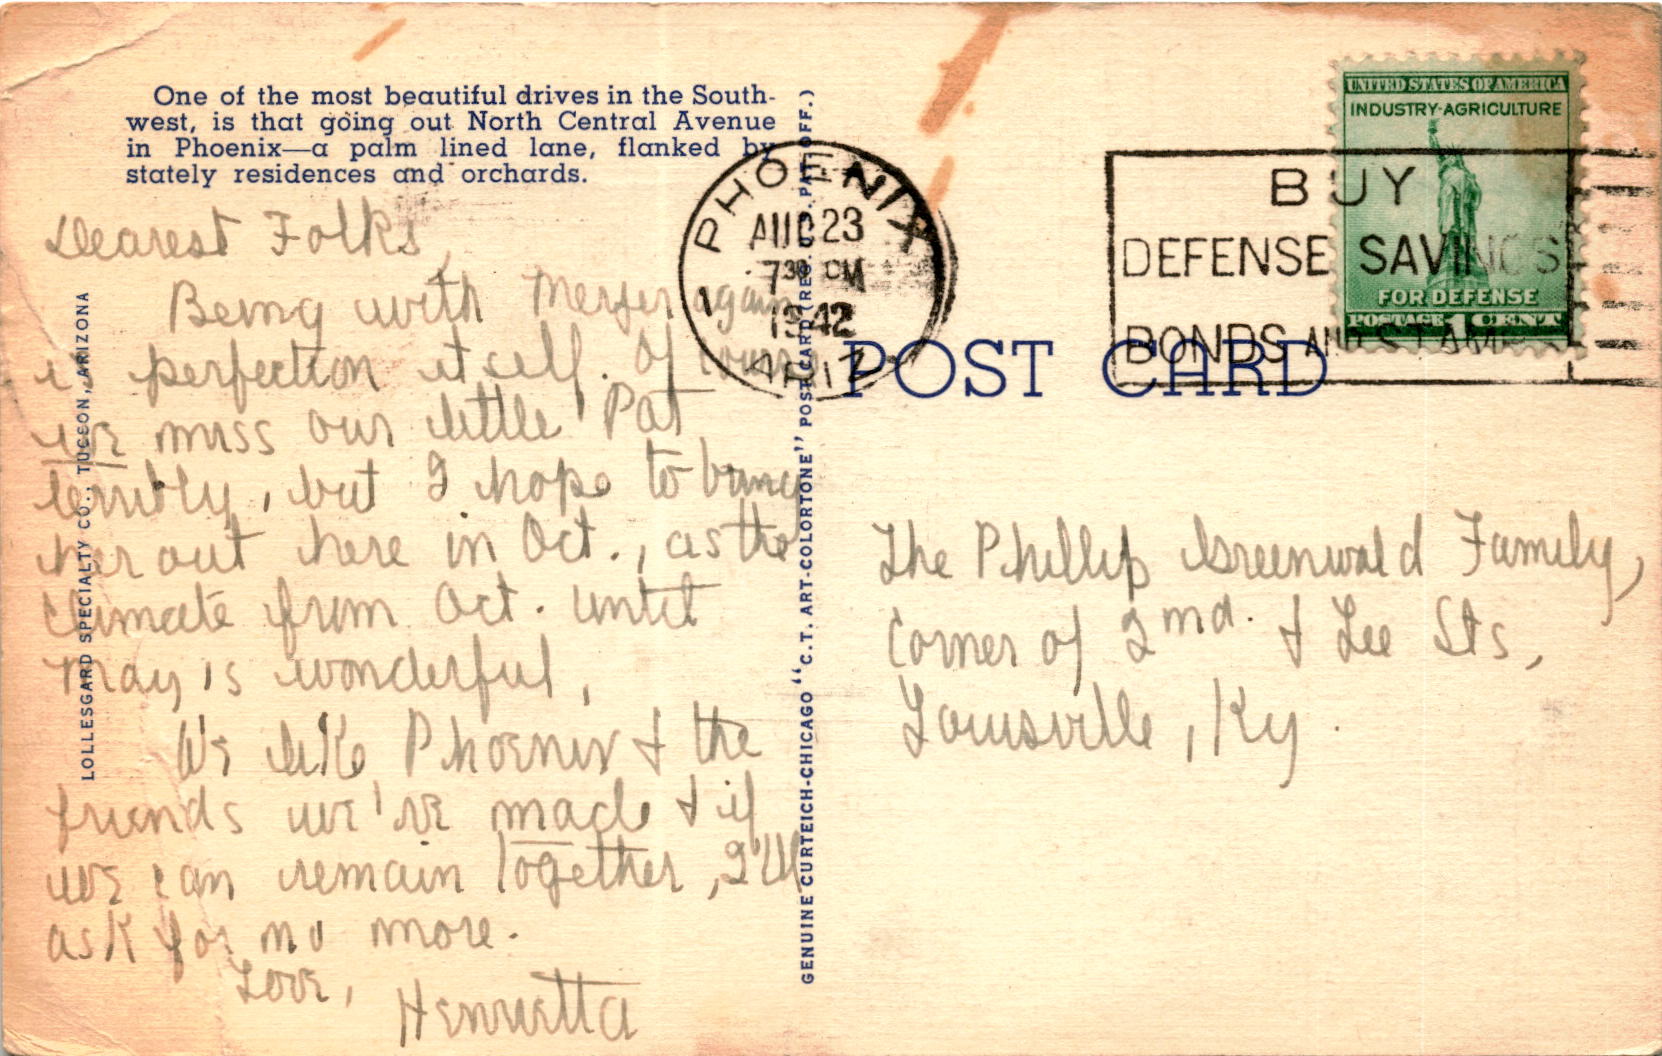 One of the most beautiful drives in the South-
west, is that going out North Central Avenue
in Phoenix—a palm lined lane, flanked by
stately residences and orchards.
Dearest Folks,
Being with again
is perfection itself. Of course
we miss our little Pat
terribly, but I hope to bring
her out here in Oct., as the
climate from Oct. until
May is wonderful.
We like Phoenix & the
friends we've made & if
we can remain together, I'll
ask for no more.
Love,
Henrietta
LOLLESGARD SPECIALTY CO., TUCSON, ARIZONA
GENUINE CURTEICH-CHICAGO "C.T. ART-COLORTONE" POST CARD (REG. U.S. PAT. OFF.)
PHOENIX
AUG 23
7 30 PM
1942
ARIZ
1
BUY
DEFENSE SAVINGS
BONDS AND STAMPS
UNITED STATES OF AMERICA
INDUSTRY-AGRICULTURE
FOR DEFENSE
POSTAGE 1 CENT
POST CARD
The Phillip Greenwald Family,
Corner of 2nd. & Lee Sts,
Louisville, Ky.